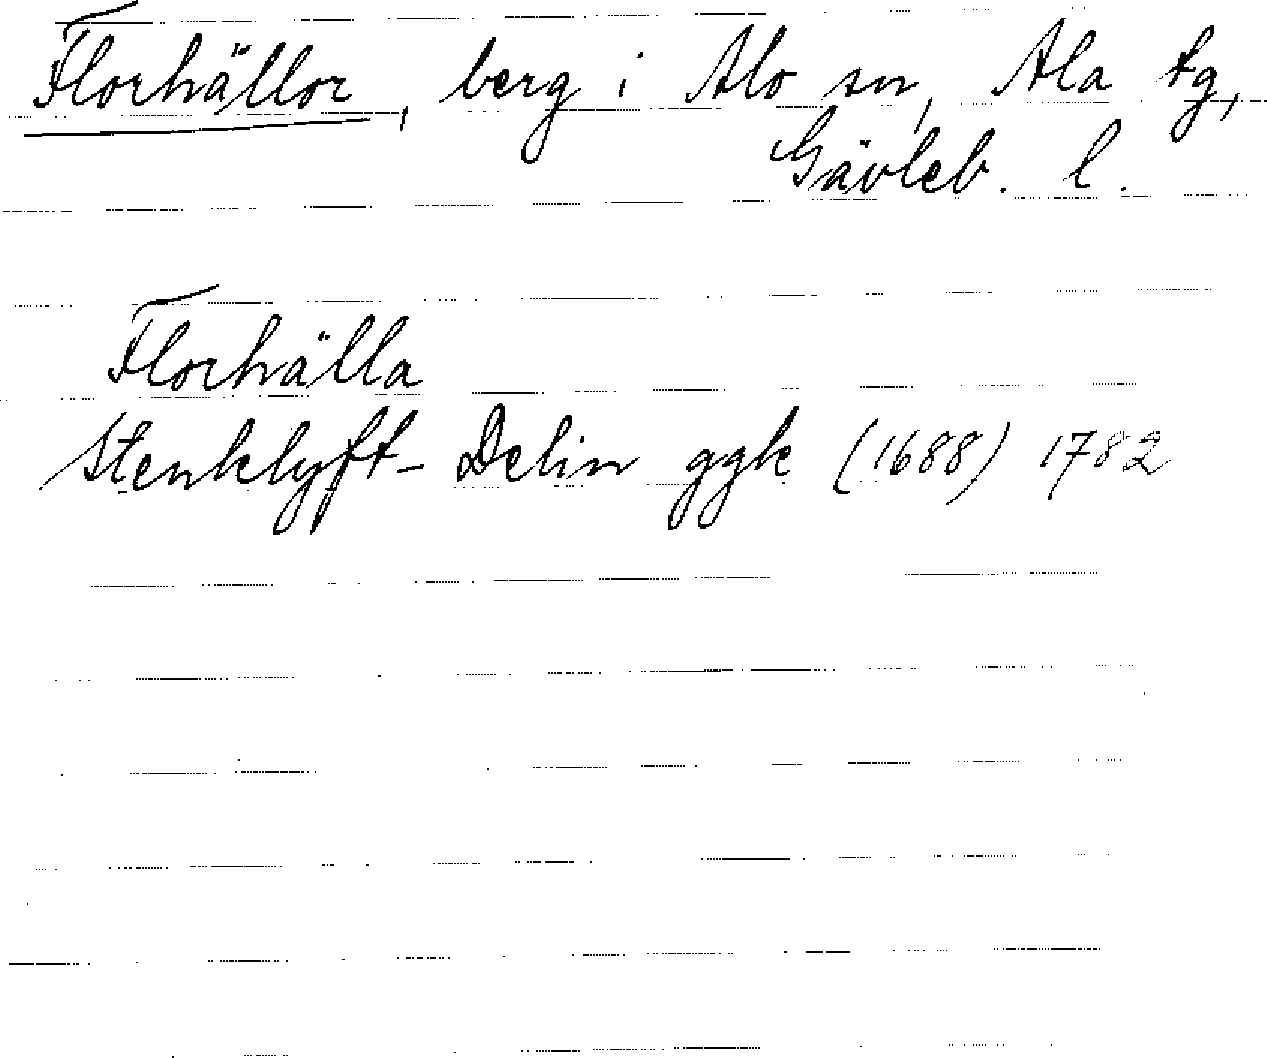 Florhällor, berg i Alo sn, Ala tg,
Gävleb. l.
Florhälla
Stenklyft- Delin ggk (1688) 1782